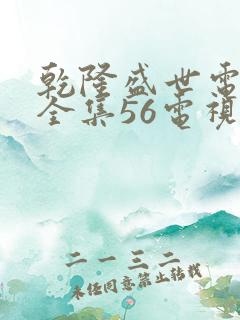 乾隆盛世電
全集56電視
二一三二
未经同意禁止转载